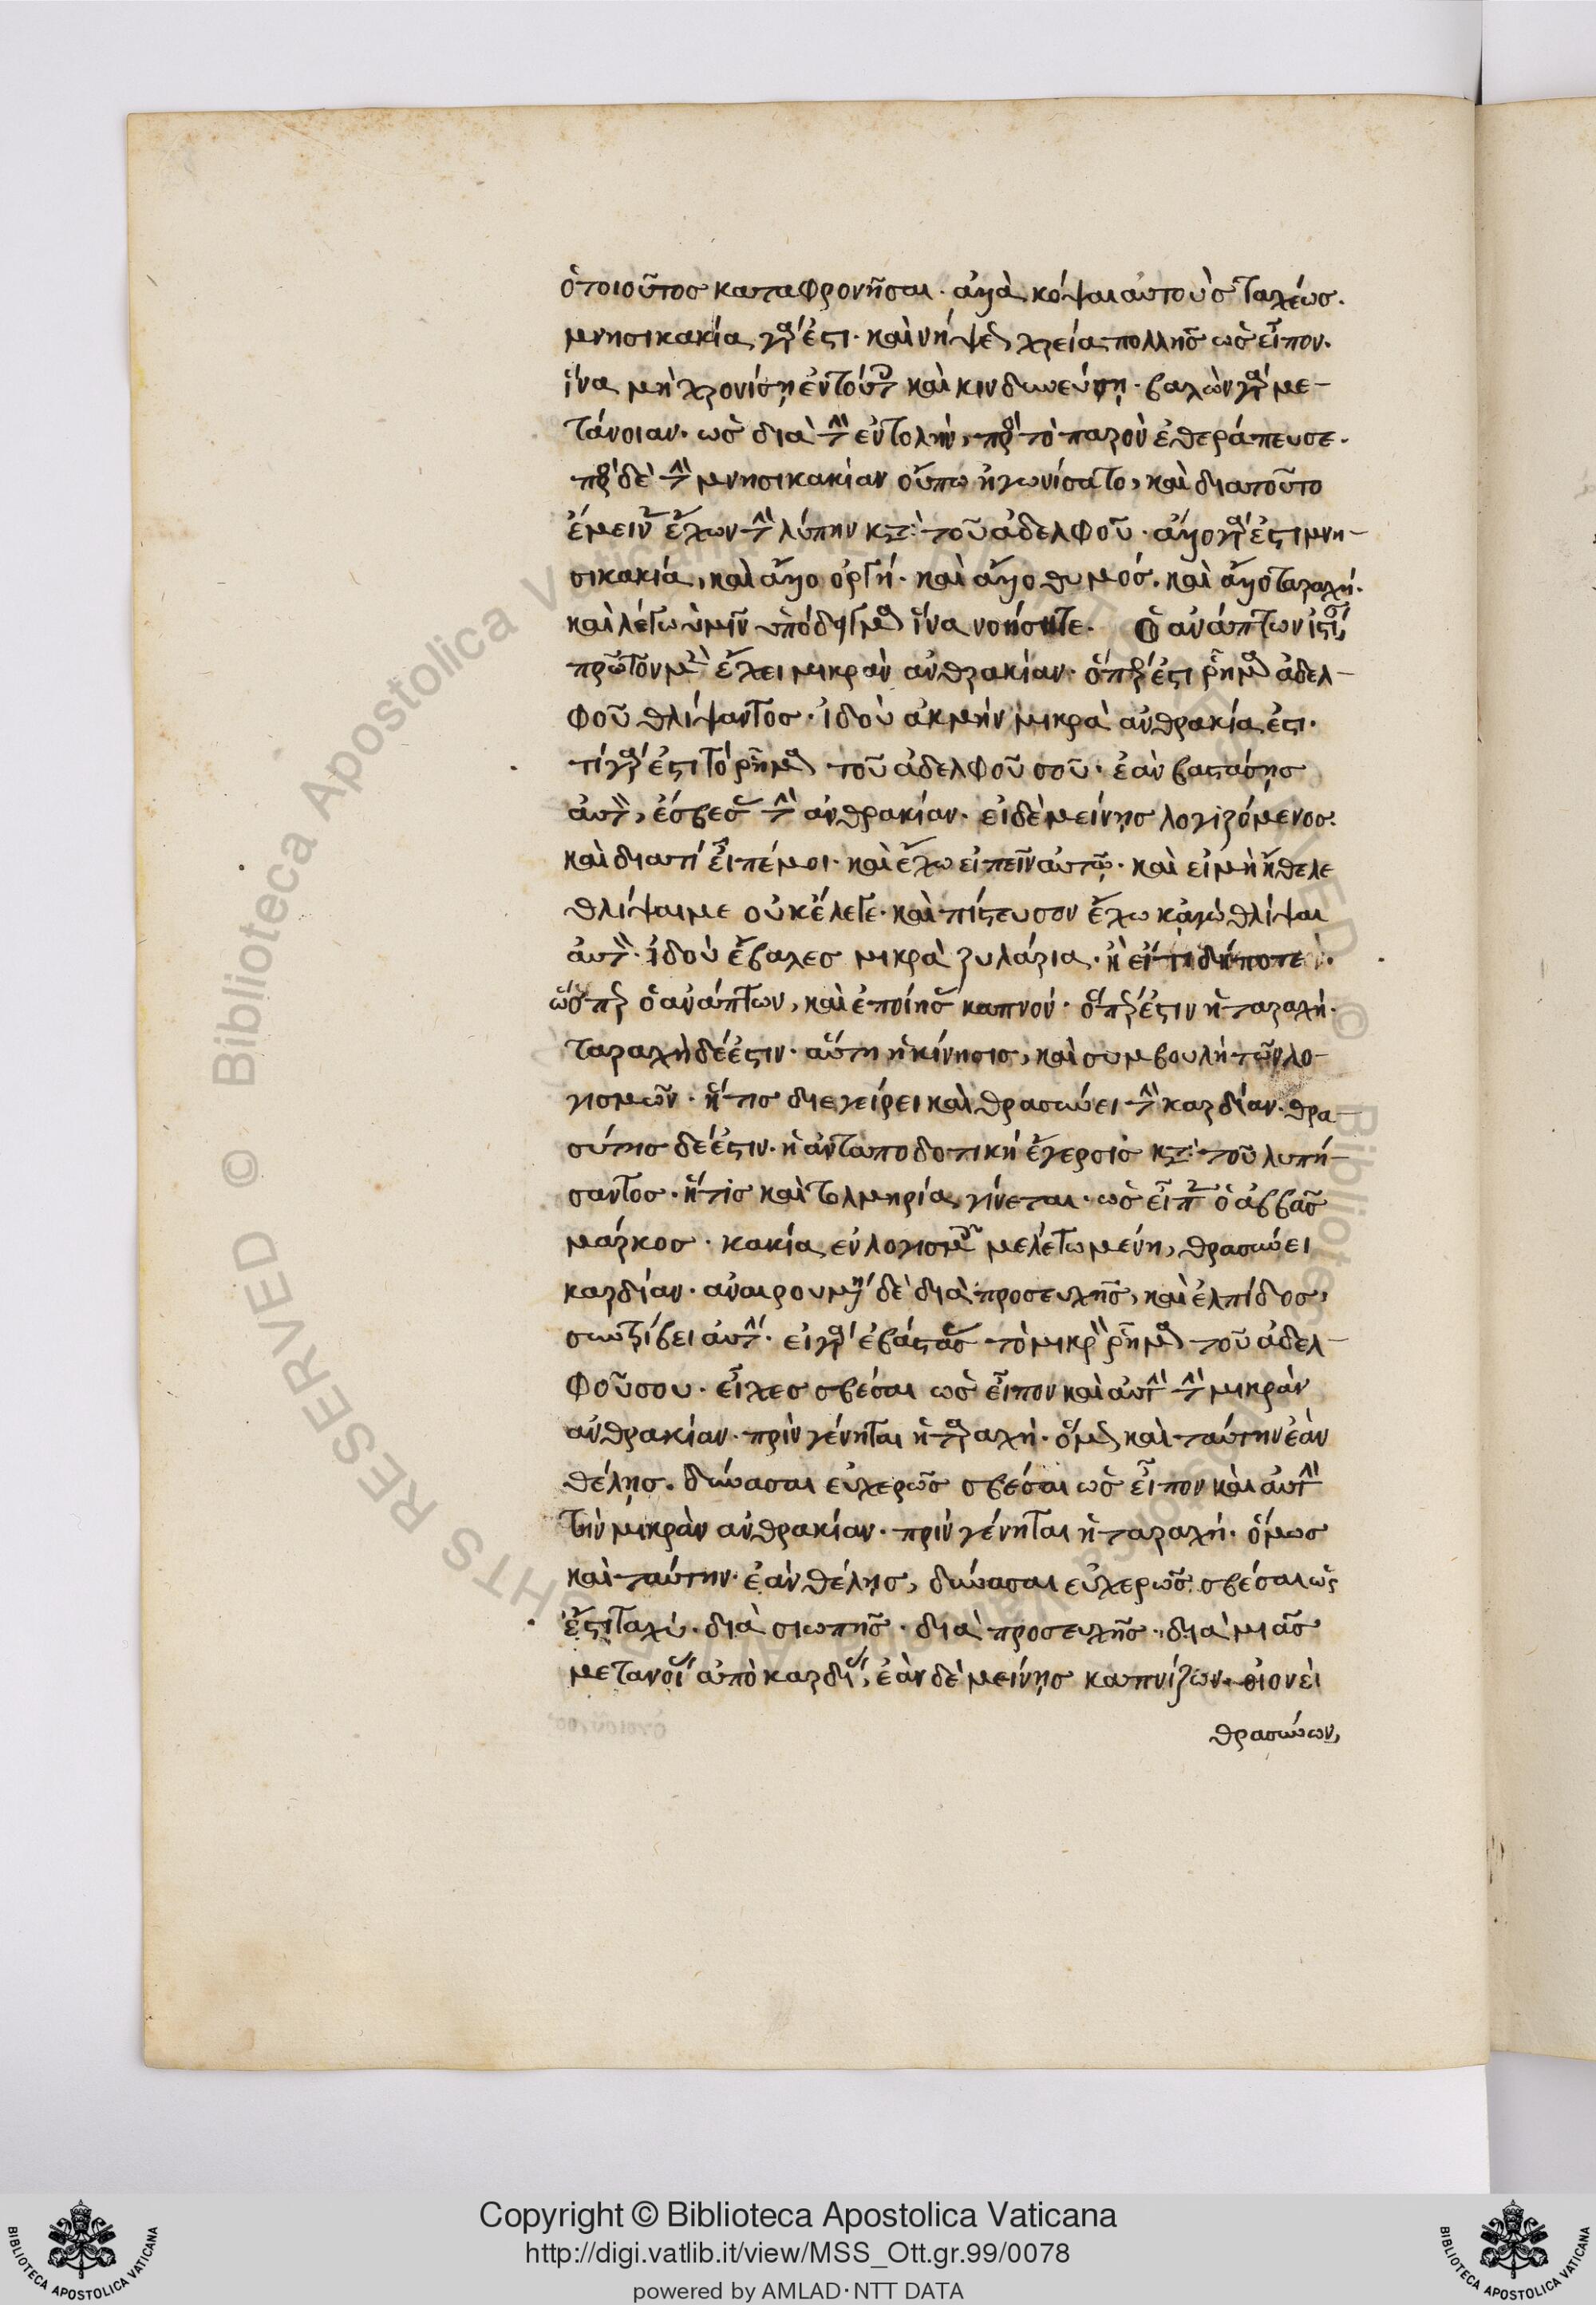 ὁ τοιοῦτος καταφρονῆσαι· ἀλλὰ κόψαι αὐτοὺς ταχέως.
μνησικακία γάρ ἐστι· καὶ νήψεως χρεία πολλῆς ὡς εἶπον·
ἵνα μὴ χρονίσῃ ἐν τούτῳ καὶ κινδυνεύσῃ· βαλὼν γὰρ με-
τάνοιαν· ὡς διὰ τὴν ἐντολὴν, πρὸς τὸ παρὸν ἐθεράπευσε·
πρὸς δὲ τὴν μνησικακίαν οὔπω ἠγωνίσατο, καὶ διατοῦτο
ἔμεινεν ἔχων τὴν λύπην κατὰ τοῦ ἀδελφοῦ· ἄλλο γάρ ἐστι μνη-
σικακία, καὶ ἄλλο ὀργή· καὶ ἄλλο θυμός· καὶ ἄλλο ταραχή·
καὶ λέγω ὑμῖν ὑπόδειγμα ἵνα νοήσητε. Ὁ ἀνάπτων ἱστίαν
πρῶτον μὲν ἔχει μικρὰν ἀνθρακίαν· ὅπερ ἐστι ῥῆμα ἀδελ-
φοῦ θλίψαντος· ἰδοὺ ἀκμὴν μικρὰ ἀνθρακία ἐστι·
τί γάρ ἐστι τὸ ῥῆμα τοῦ ἀδελφοῦ σοῦ· ἐὰν βαστάσῃς
αὐτὸ, ἔσβεσας τὴν ἀνθρακίαν· εἰ δὲ μείνῃς λογιζόμενος·
καὶ διατί εἶπέ μοι· καὶ ἔχω εἰπεῖν αὐτῷ· καὶ εἰ μὴ ἤθελε
θλίψαι με οὐκ ἔλεγε· καὶ πίστευσον ἔχω κἀγὼ θλίψαι
αὐτὸν· ἰδοὺ ἔβαλες μικρὰ ξυλάρια· ἢ εἴ τι δήποτε
ὥσπερ ὁ ἀνάπτων, καὶ ἐποίησας καπνόν· ὅπερ ἐστιν ἡ ταραχή·
ταραχὴ δέ ἐστιν· αὕτη ἡ κίνησις, καὶ συμβουλὴ τῶν λο-
γισμῶν· ἥτις διεγείρει καὶ θρασύνει τὴν καρδίαν· θρα-
σύτης δέ ἐστιν· ἡ ἀνταποδοτικὴ ἔγερσις κατὰ τοῦ λυπή-
σαντος· ἥτις καὶ τολμηρία γίνεται· ὡς εἶπεν ὁ ἀββᾶς
μάρκος· κακία ἐν λογισμοῖς μελετωμένη, θρασύνει
καρδίαν· ἀναιρουμένη δὲ διὰ προσευχῆς, καὶ ἐλπίδος,
συντρίβει αὐτήν· εἰ γὰρ ἐβάστασας τὸ μικρὸν ῥῆμα τοῦ ἀδελ-
φοῦ σου· εἶχες σβέσαι ὡς εἶπον καὶ αὐτὴν τὴν μικρὰν
ἀνθρακίαν· πρὶν γένηται ἡ ταραχή· ὅμως καὶ ταύτην ἐὰν
θέλῃς· δύνασαι εὐχερῶς σβέσαι ὡς εἶπον καὶ αὐτὴν
τὴν μικρὰν ἀνθρακίαν· πρὶν γένηται ἡ ταραχή· ὅμως
καὶ ταύτην· ἐὰν θέλῃς, δύνασαι εὐχερῶς σβέσαι ὡς
ἔστι ταχύ· διὰ σιωπῆς· διὰ προσευχῆς· διὰ μιᾶς
μετανοίας ἀπὸ καρδίας, ἐὰν δὲ μείνῃς καπνίζων· οἱονεὶ
θρασύνων,
Copyright © Biblioteca Apostolica Vaticana
http://digi.vatlib.it/view/MSS_Ott.gr.99/0078
powered by AMLAD·NTT DATA